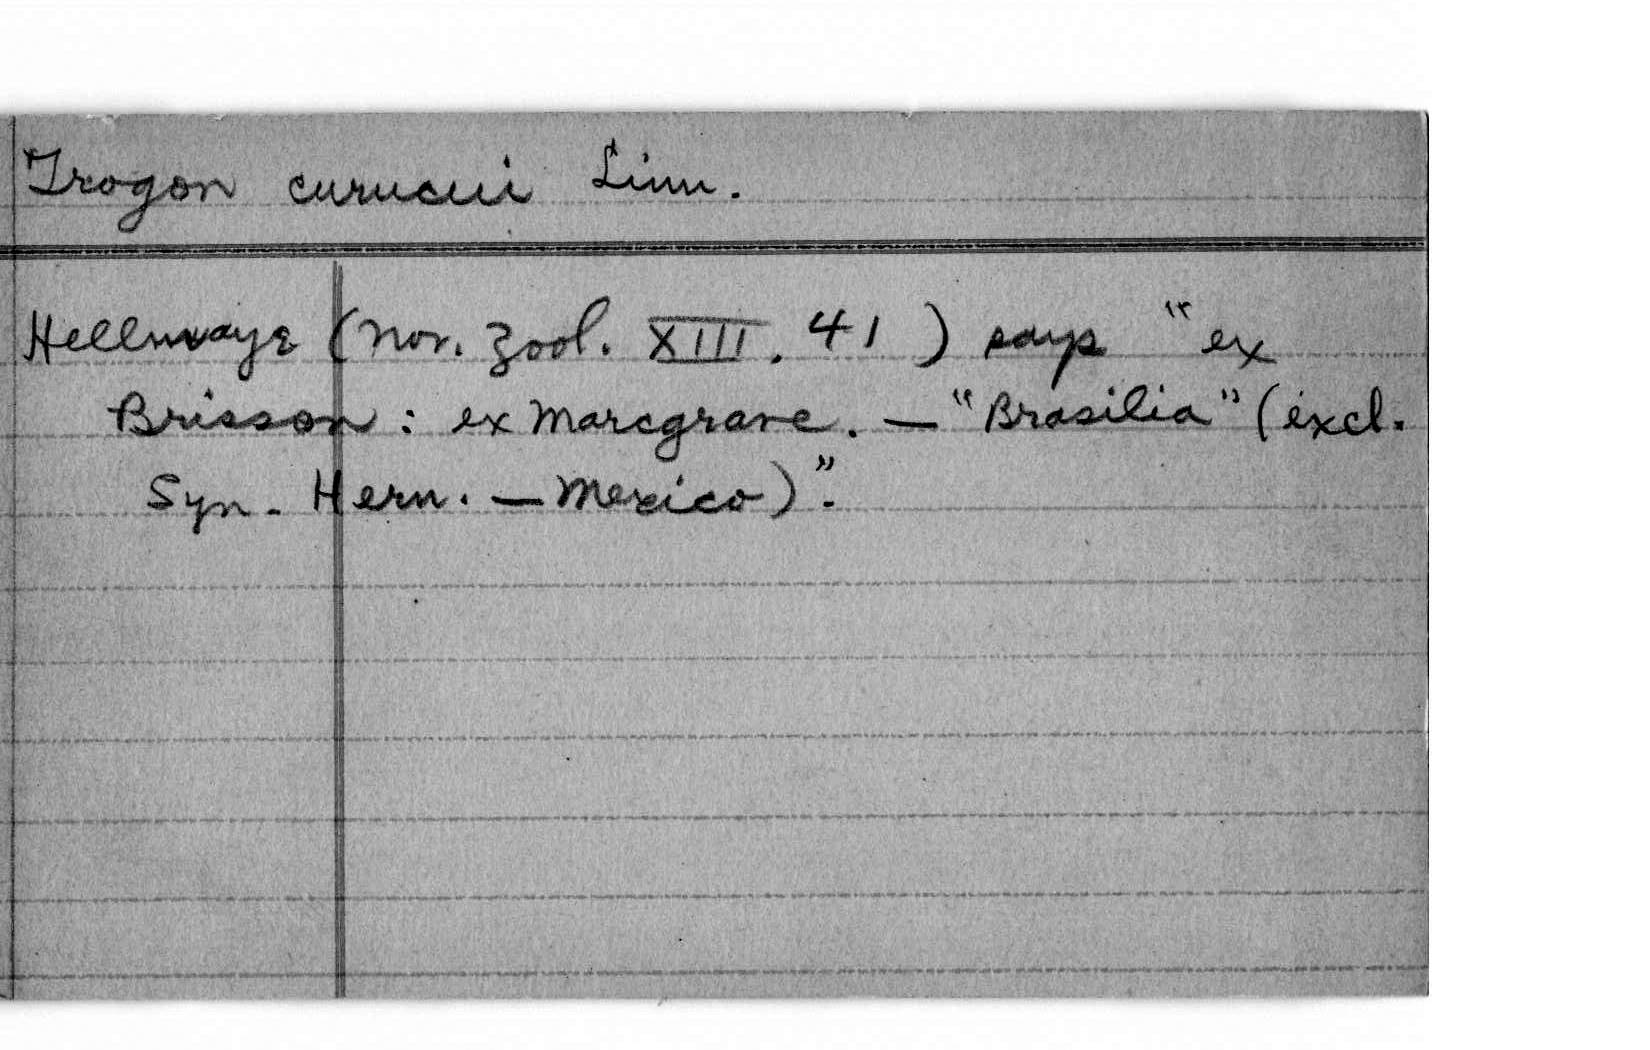 Trogon curucui Linn.
Hellmayr (Nov. Zool. XIII. 41) says "ex
Brisson: ex Marcgrave. — "Brasilia" (excl.
Syn. Hern. — Mexico)".